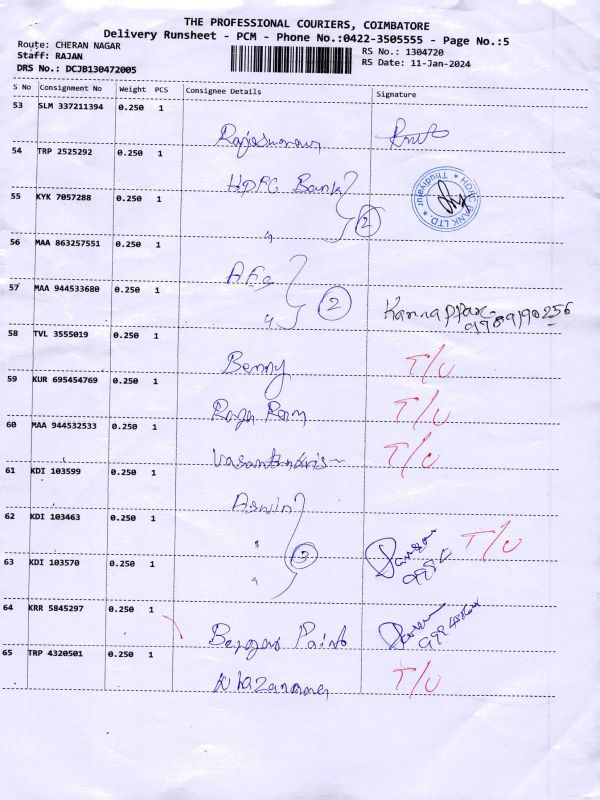 THE PROFESSIONAL COURIERS, COIMBATORE
Delivery Runsheet - PCM - Phone No.:0422-3505555 - Page No.:5
Route: CHERAN NAGAR
RS No.: 1304720
Staff: RAJAN
RS Date: 11-Jan-2024
DRS No.: DCJB130472005
S No Consignment No Weight PCS Consignee Details Signature
53 SLM 337211394 0.250 1
54 TRP 2525292 0.250 1
HDFC Bank
HDFC BANK LTD * Thudiyalur *
55 KYK 7057288 0.250 1
2
56 MAA 863257551 0.250 1
57 MAA 944533680 0.250 1
2
58 TVL 3555019 0.250 1
Benny T/U
59 KUR 695454769 0.250 1
Raja Ram T/U
60 MAA 944532533 0.250 1
T/U
61 KDI 103599 0.250 1
Aswin
62 KDI 103463 0.250 1
" 3 T/U
63 KDI 103570 0.250 1
"
64 KRR 5845297 0.250 1
Berger Paint
65 TRP 4320501 0.250 1
T/U